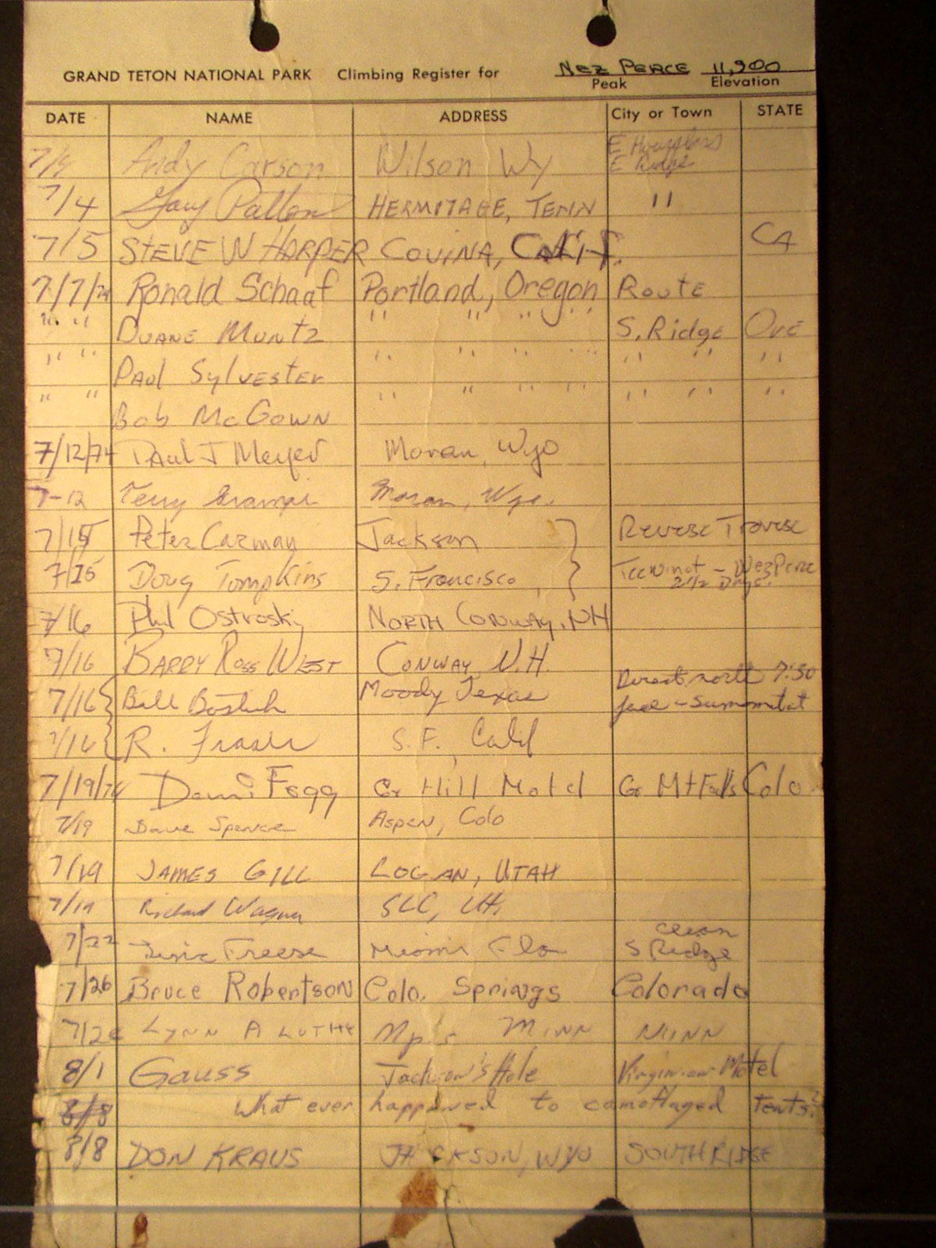 GRAND TETON NATIONAL PARK Climbing Register for NEZ PERCE 11,900
Peak Elevation
DATE NAME ADDRESS City or Town STATE
7/4 Andy Carson Wilson Wy E Hourglass
E Ridge
7/4 Gary Patton HERMITAGE, TENN "
7/5 STEVE W HARPER COVINA, CALIF. CA
7/7/74 Ronald Schaaf Portland, Oregon Route
" " DUANE MUNTZ " " " " S. Ridge Ore
" " PAUL SYLVESTER " " " " " " " "
" " Bob McGOWN " " " " " " " "
7/12/74 PAUL J Meyer Moran, Wyo
7-12 Terry Moran, Wyo.
7/15 Peter Carman Jackson Reverse Traverse
7/15 Doug Tompkins S. Francisco Teewinot - Nez Perce
2 1/2 Days.
7/16 Phil Ostroski NORTH CONWAY, NH
7/16 BARRY ROSS WEST CONWAY N.H.
7/16 Bill Moody Texas Direct north 7:30
face - summit at
7/16 R. Fraser S.F. Calif
7/19/74 Fogg Gr Hill Motel Gr Mt Falls Colo
7/19 Dave Spence Aspen, Colo
7/19 JAMES GILL LOGAN, UTAH
7/19 Richard Wagner SLC, UT.
7/22 Freese Miami Fla S Ridge
7/26 Bruce Robertson Colo. Springs Colorado
7/26 LYNN A LUTHY Mpls MINN MINN
8/1 Gauss Jackson's Hole Virginian Motel
8/8 What ever happened to camoflaged tents?
8/8 DON KRAUS JACKSON, WYO SOUTH RIDGE